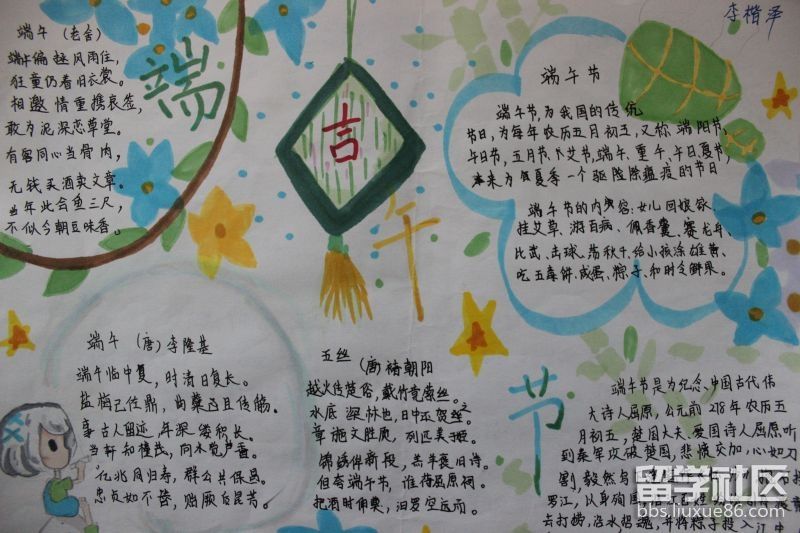 李楷泽
端午（老舍）
端午偏逢风雨狂，
村童仍着旧衣裳。
相邀情重携蓑笠，
敢为泥深恋草堂。
有客同心当骨肉，
无钱买酒卖文章。
当年此会鱼三尺，
不似今朝豆味香。
端
午
节
吉
端午节
端午节，为我国的传统
节日，为每年农历五月初五，又称端阳节，
午日节，五月节、艾节，端午，重午，午日，夏节，
本来为夏季一个驱除瘟疫的节日
端午节的内容：女儿回娘家，
挂艾草、游百病、佩香囊、赛龙舟，
比武、击球、荡秋千、给小孩涂雄黄，
吃五毒饼、咸蛋、粽子、和时令鲜果。
端午（唐）李隆基
端午临中夏，时清日复长。
盐梅已佐鼎，曲糵且传觞。
事古人留迹，年深缕积长。
当轩知槿茂，向水觉芦香。
亿兆同归寿，群公共保昌。
忠贞如不替，贻厥后昆芳。
五丝（唐）褚朝阳
越人传楚俗，截竹竞萦丝。
水底深休也，日中还贺之。
章施文胜质，列匹美于姬。
锦绣侔新段，羔羊寝旧诗。
但夸端午节，谁荐屈原祠。
把酒时伸奠，汨罗空远而。
端午节是为纪念、中国古代伟
大诗人屈原，公元前278年农历五
月初五，楚国大夫、爱国诗人屈原听
到秦军攻破楚国，悲愤交加，心如刀
割，毅然
罗江，以身殉国
去打捞，
并将粽子投入江中
留学社区
bbs.liuxue86.com